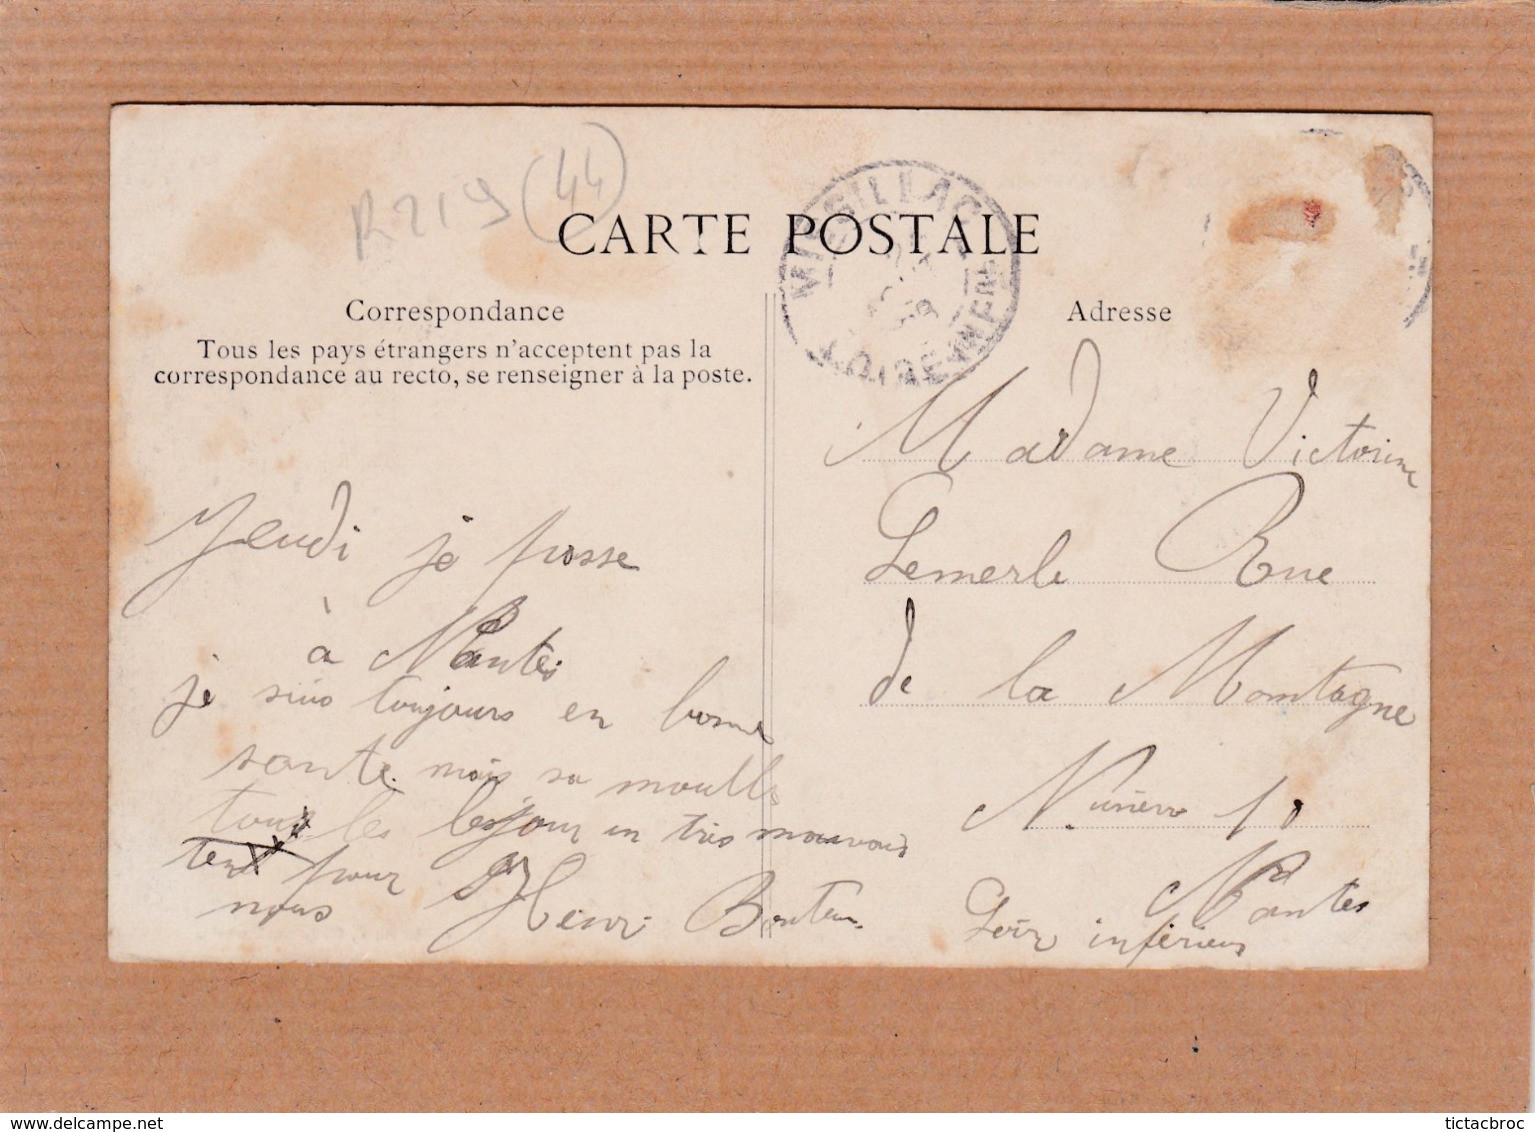 R219 (44)
CARTE POSTALE
MISSILLAC
LOIRE-INFRE
Correspondance
Tous les pays étrangers n'acceptent pas la
correspondance au recto, se renseigner à la poste.
Jeudi je passe
à Nantes
je suis toujours en bonne
sante mais sa moulle
tous les jour un tres mauvais
tent pour Henri
nous
Adresse
Madame Victorine
Lemerle Rue
de la Montagne
Numero 10
Nantes
Loir inferieur
delcampe.net
tictacbroc